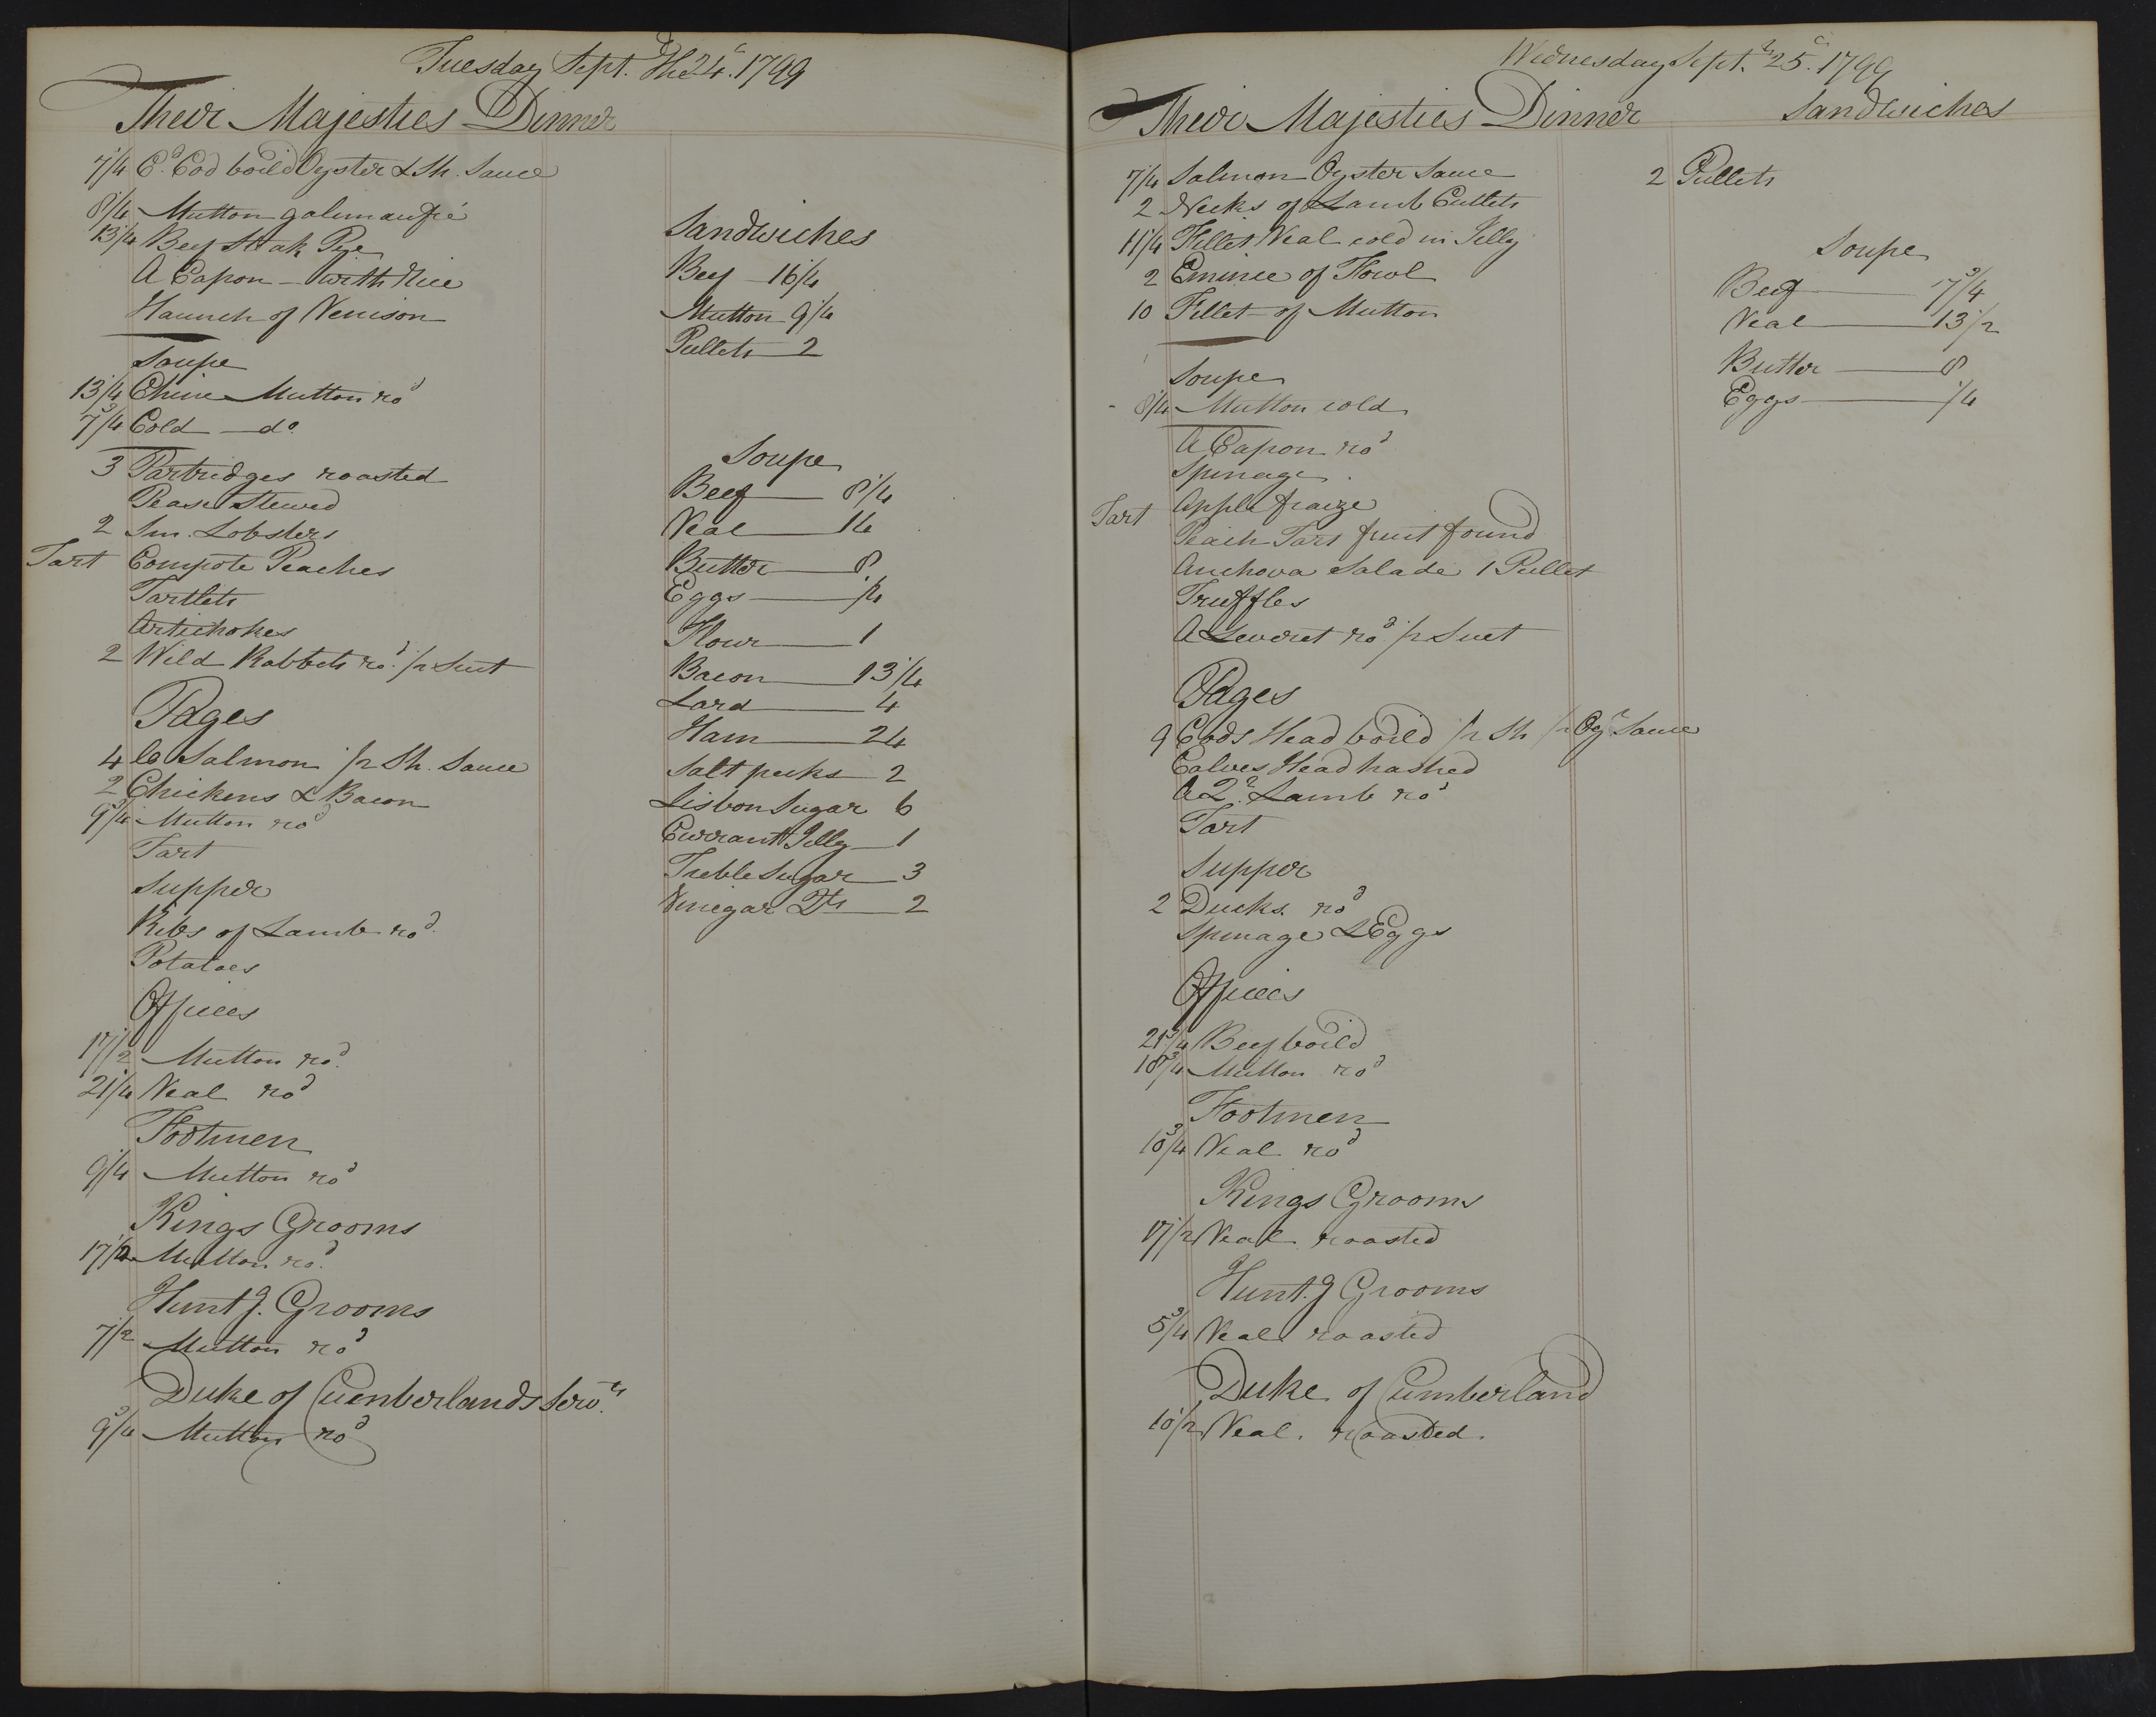 Tuesday Sept. the 24. 1799
Their Majesties Dinner
7 1/4 C.d Cod boild Oyster & Sh. Sauce
8 1/4 Mutton galimaufré
13 1/4 Beef Steak Pye
A Capon with Rice
Haunch of Venison
Soupe
13 1/4 Chine Mutton ro.d
7 3/4 Cold do.
3 Partridges roasted
Pease Stewed
2 Sm. Lobsters
Tart Compote Peaches
Tartlets
Artichokes
2 Wild Rabbets ro.d 1/2 Suet
Pages
4 lb Salmon 1/2 Sh. Sauce
2 Chickens & Bacon
9 3/4 Mutton ro.d
Tart
Supper
Ribs of Lamb ro.d
Potatoes
Offices
17 1/2 Mutton ro.d
21 1/4 Veal ro.d
Footmen
9 1/4 Mutton ro.d
Kings Grooms
17 1/2 Mutton ro.d
Hunt.g Grooms
7 1/2 Mutton ro.d
Duke of Cumberlands Serv.ts
9 3/4 Mutton ro.d
Sandwiches
Beef 16 1/4
Mutton 9 1/4
Pullets 2
Soupe
Beef 8 1/4
Veal 14
Butter 8
Eggs 1/4
Flour 1
Bacon 13 1/4
Lard 4
Ham 24
Salt pecks 2
Lisbon Sugar 6
Currant Jelly 1
Treble Sugar 3
Vinegar Q.ts 2
Wednesday Sept. th 25. 1799
Their Majesties Dinner
7 1/4 Salmon Oyster Sauce
2 Necks of Lamb Cutlets
11 1/4 Fillet Veal cold in Jelly
2 Emince of Fowl
10 Fillet of Mutton
Soupe
8 1/4 Mutton cold
A Capon ro.d
Spinage
Apple fraize
Tart Peach Tart fruit found
Anchova Salade 1 Pullet
Truffles
A Leveret ro.d 1/2 Suet
Pages
9 Cods Head boild 1/2 Sh 1/2 Oy.r Sauce
Calves Head hashed
A Q.r Lamb ro.d
Tart
Supper
2 Ducks ro.d
Spinage & Eggs
Offices
21 3/4 Beef boild
18 3/4 Mutton ro.d
Footmen
10 3/4 Veal ro.d
Kings Grooms
17 1/2 Veal roasted
Hunt.g Grooms
5 3/4 Veal roasted
Duke of Cumberland
10 1/2 Veal. roasted.
Sandwiches
2 Pullets
Soupe
Beef 7 3/4
Veal 13 1/2
Butter 8
Eggs 1/4